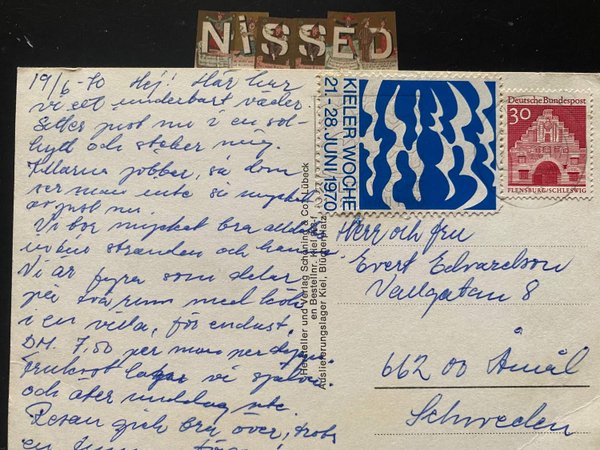 NiSSED
19/6-70 Hej! Här har
vi ett underbart väder.
Sitter just nu i en sol-
stol och steker mig.
Killarna jobbar, så dom
ser man inte så mycket
av just nu.
Vi bor mycket bra alldeles
vid stranden och
Vi är fyra som delar
på två rum med kök
i en villa, för endast
DM. 7,50 per man per dygn.
Frukost lagar vi själva
och äter middag ute.
Resan gick bra över, trots
en
KIELER WOCHE
21.-28. JUNI 1970
Deutsche Bundespost
30
FLENSBURG/SCHLESWIG
Hersteller und Verlag Schöning & Co., Lübeck
en Bestellnr. Kiel
Auslieferungslager Kiel, Blücherplatz
Herr och fru
Evert Edvardson
Vallgatan 8
662 00 Åmål
Schweden